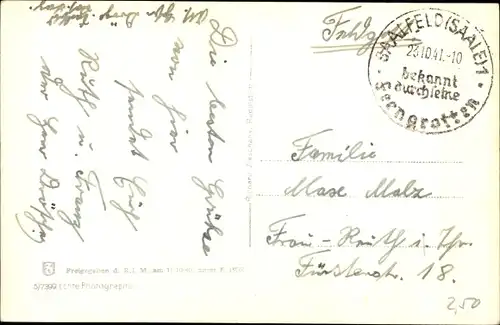 Die besten Grüße
von hier
sendet Euch
Ruth u. Franz
Feldpost
SAALFELD (SAALE) 1
23.10.41.-10
bekannt
durch seine
Feengrotten
Familie
Max Malz
Frau-Reuth i. Thr.
Fürstenstr. 18.
2,50
Freigegeben d. R. L. M. am
5/7399 Echte Photographie